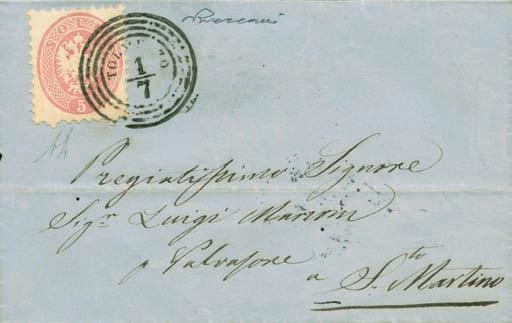 SOLDI
5
TOLMEZZO
1
7
Pregiatissimo Signore
Sigr Luigi Marioni
p Valvasone
a S. Martino